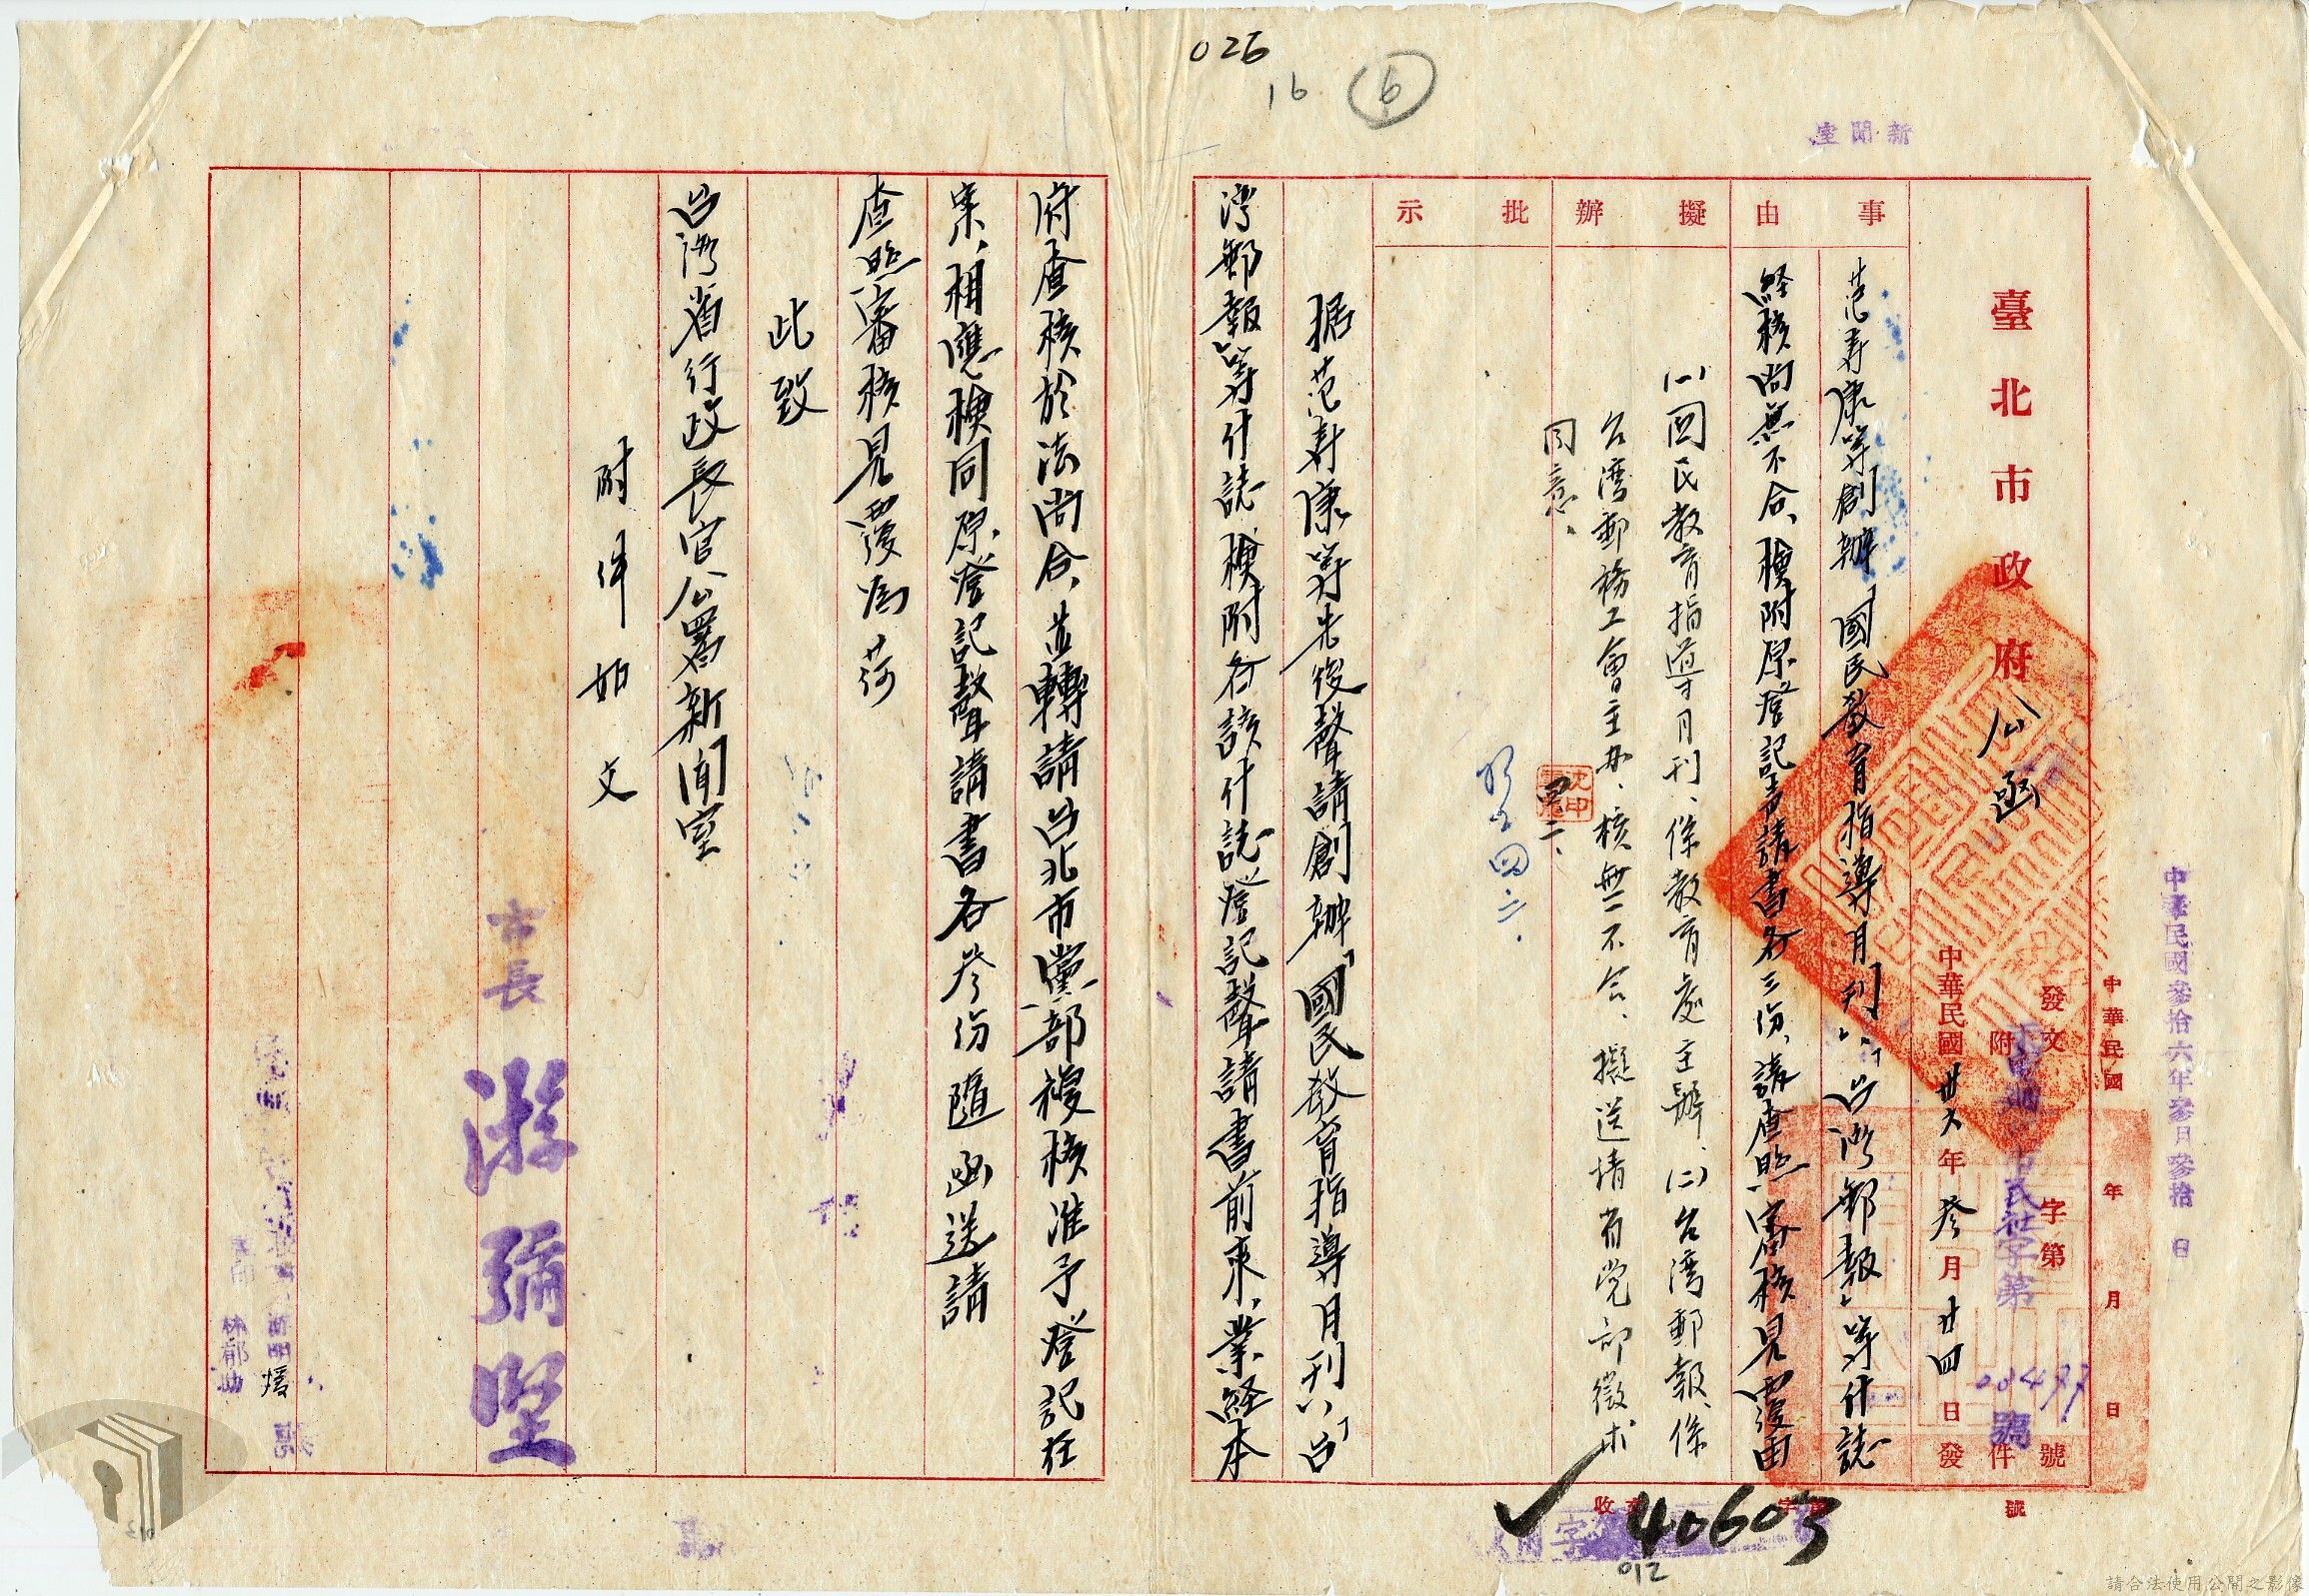 026
16
6
新聞室
中華民國參拾六年參月參拾 日
中華民國 年 月 日
臺北市政府公函
發文 字第 號
附 件
市民社字第 號
中華民國卅六年叁月廿四日發
事由
范壽康等創辦「國民教育指導月刊」、「台灣郵報」等什誌
經核尚無不合、檢附原登記声請書各三份、請查照審核見覆由
擬辦
(一)國民教育指導月刊、係教育處主辦、(二)台灣郵報、係
台灣郵務工會主办、核無不合、擬送請省党部徵求
同意、
四二、
四、二、
批示
据范壽康等先後聲請創辦「國民教育指導月刊」、「台
灣郵報」等什誌、檢附各該什誌登記聲請書前來、業経本
府查核於法尚合、並轉請台北市黨部複核准予登記在
案、相應檢同原登記聲請書各叁份隨函送請
查照審核見覆為荷
此致
台灣省行政長官公署新聞室
附件如文
市長 游彌堅
林郁
收文 字 號
40603
012
請合法使用公開之影像